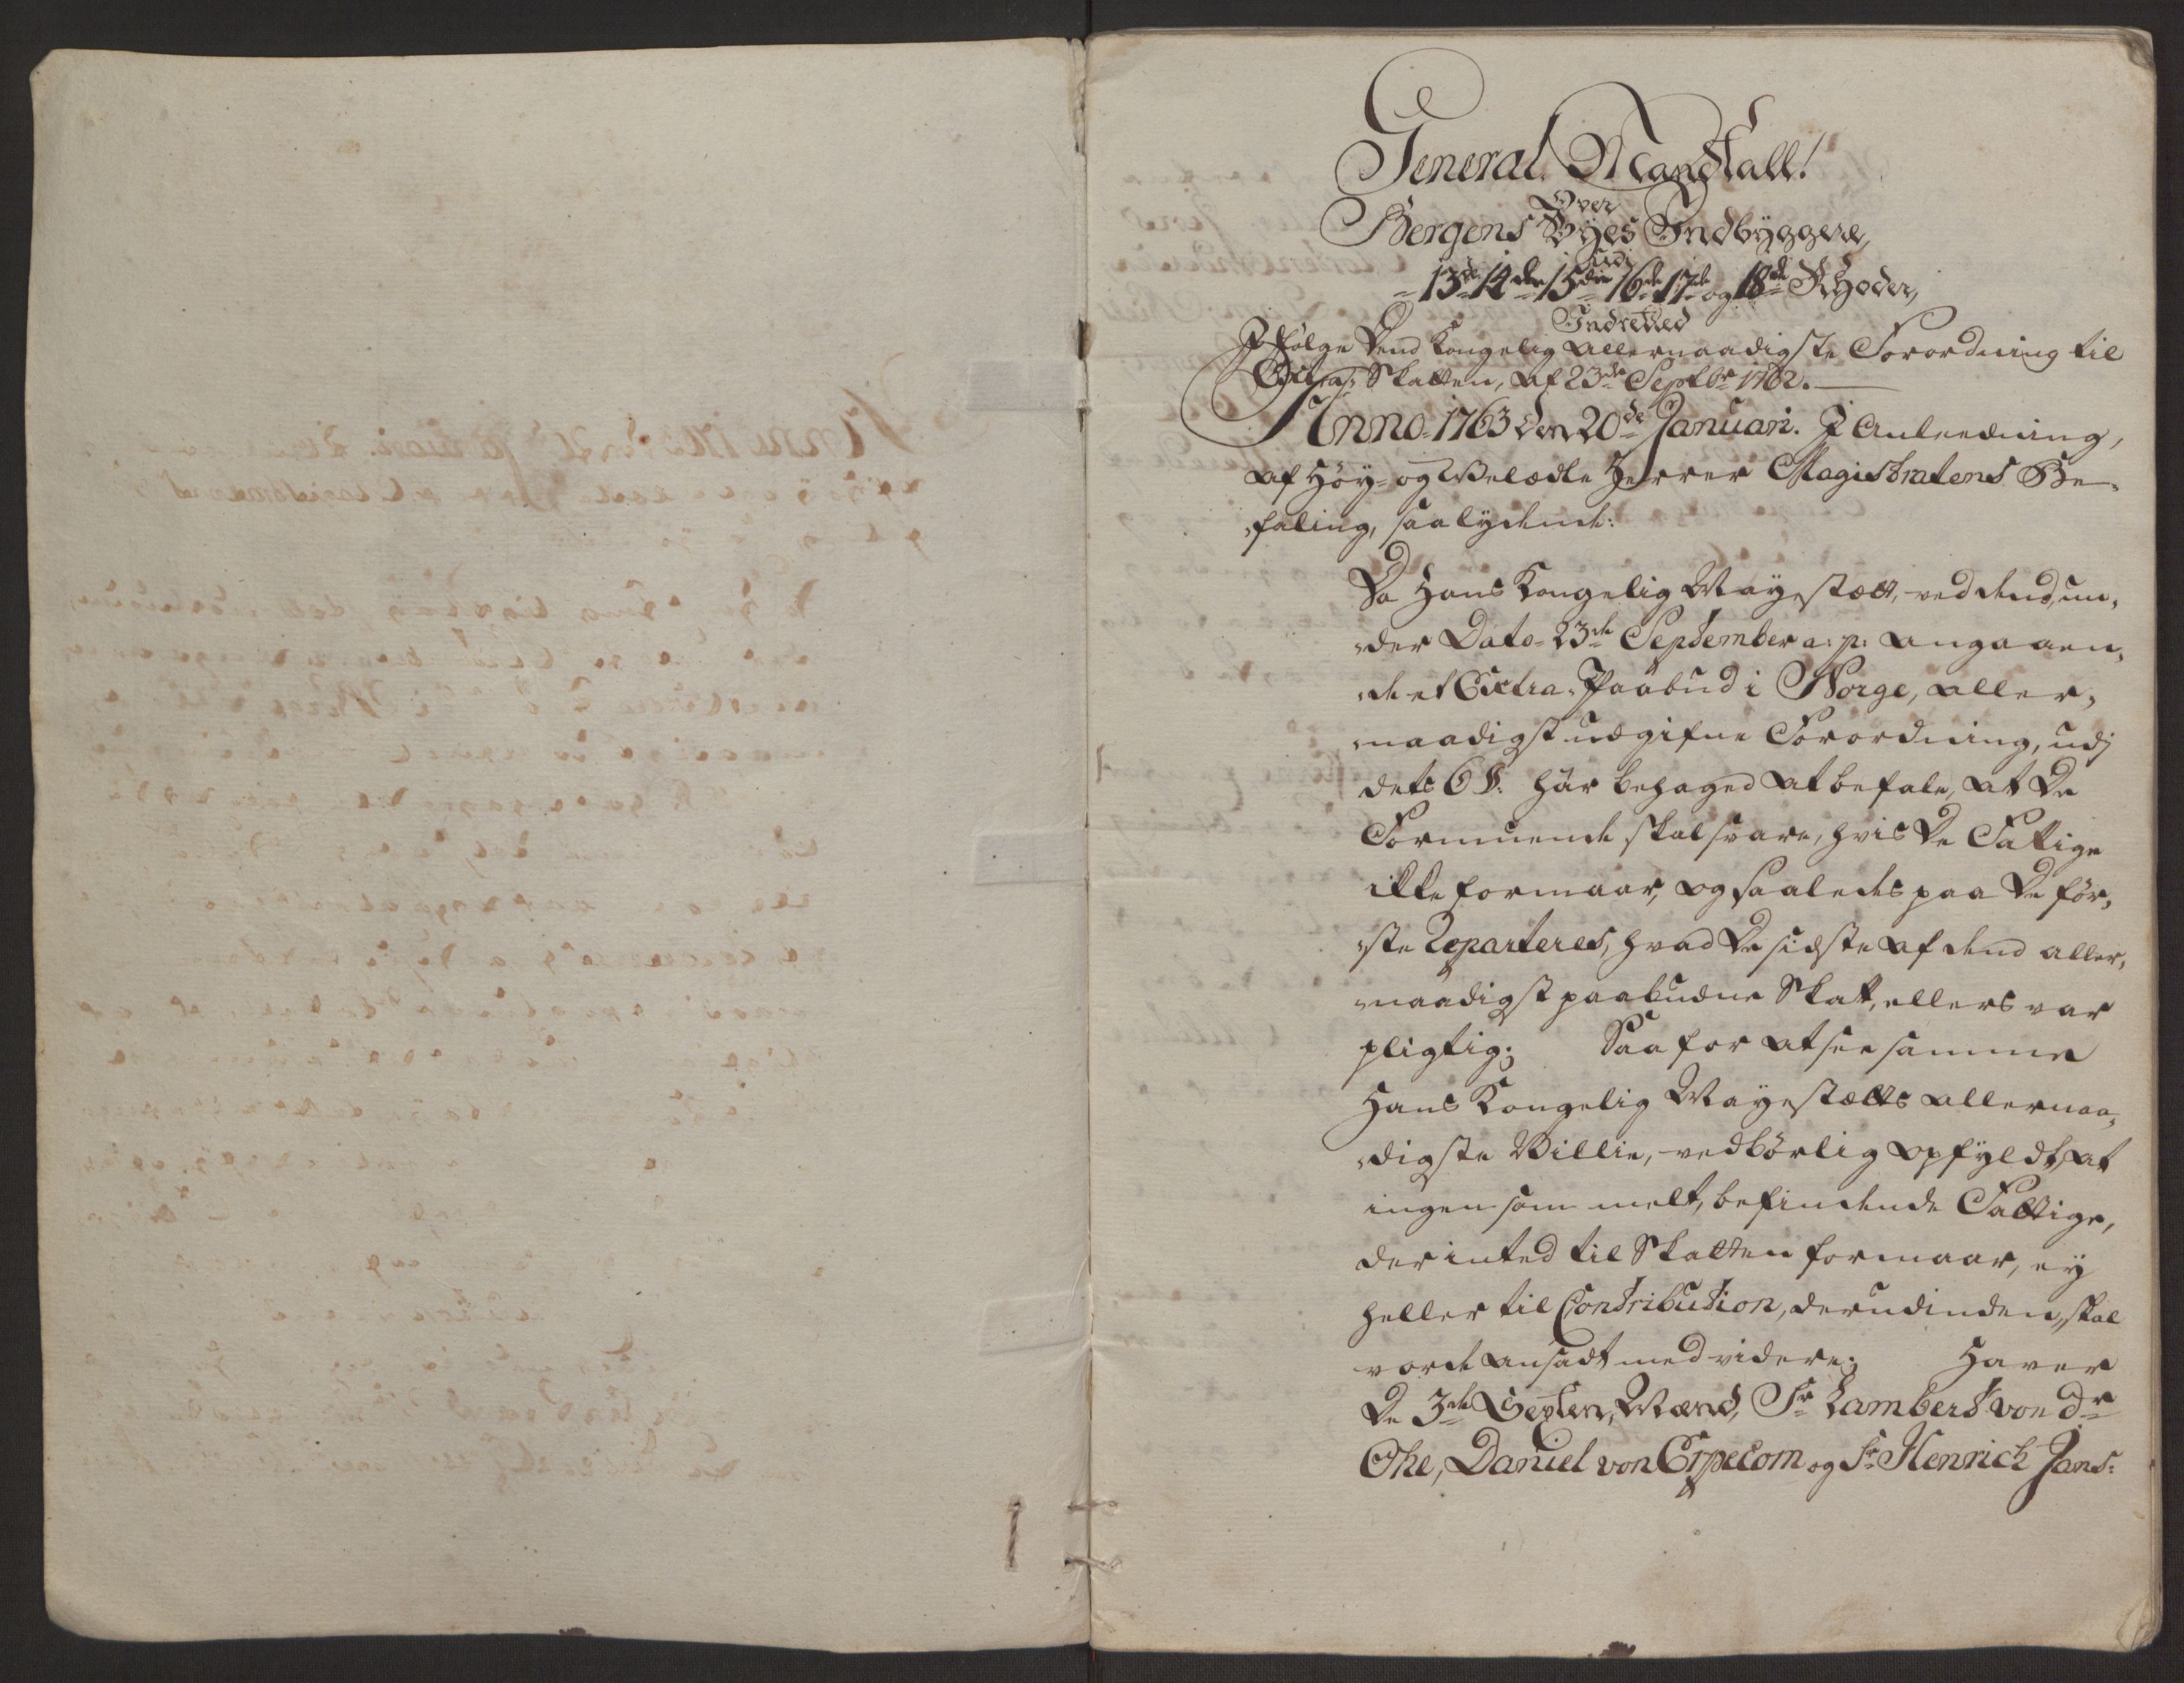 General Mandtall!
Over
Bergens Byes Indbyggere,
udi
13de 14den 15den 16de 17de og 18de Rhoder,
Indretted
I Følge Dend Kongelig Allernaadigste Forordning til
Extra Skatten, af 23de Septbr 1762.
Anno 1763 den 20de Januari. I Anleedning,
af Høy- og Velædle Herrer Magistratens Be-
faling, saalydende:
Da Hans Kongelig Mayestætt, ved dend, un-
der Dato 23de September a: p: angaaen-
de et Extra-Paabud i Norge, aller-
naadigst udgifne Forordning, udj
dets 6 §: har behaged at befale, at De
Formuende skal svare, hvis De Fattige
ikke formaar, og saaledes paa De før-
ste Reparteres, hvad De sidste af dend aller-
naadigst paabudne Skatt, ellers var
pligtig; Saa for at see samme
Hans Kongelig Mayestætts allernaa-
digste Villie, vedbørlig opfyldt, at
ingen som melt, befindende Fattige,
der inted til Skatten formaar, ey
heller til Contribution, derudinden, skal
vorde ansadt med videre; Haver
De 3de Mænd, Sr Lambert von Dr
Ohe, Daniel von Erpecom og Sr Henrich Jans: